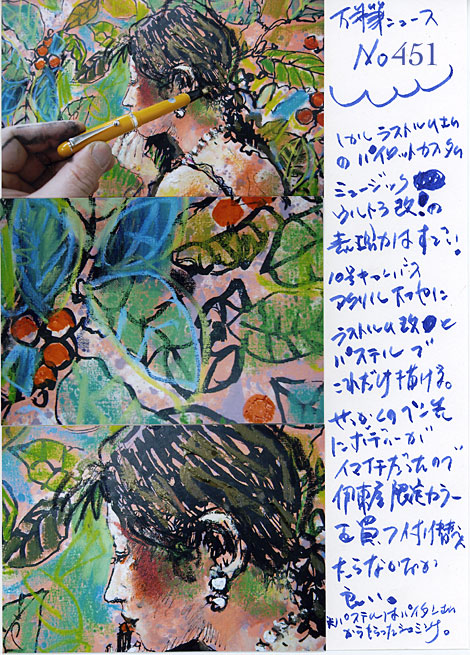 万年筆ニュース
No 451
しかしラストルムさん
のパイロットカスタム
ミュージック
ウルトラ改!の
表現力はすごい。
10号キャンバス
アクリル下地に
ラストルム改と
パステルで
これだけ描ける。
せっかくのペン先
にボディーが
イマイチだったので
伊東屋限定カラー
を買って付け替え
たらなかなか
良い。
※パステルはパイタンさん
からもらった